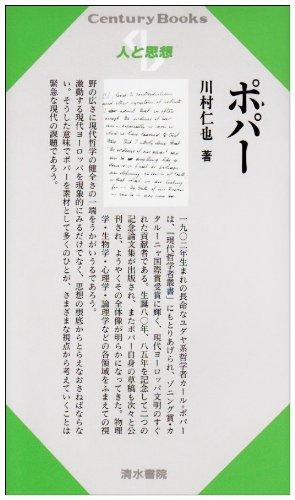 Century Books
人と思想
ポパー
川村仁也 著
一九〇二年生まれの長命なユダヤ系哲学者カール・ポパー
は、「現代哲学者叢書」にもとりあげられ、ゾニング賞・カ
タルーニャ国際賞受賞に輝く、現代ヨーロッパ文明のすぐ
れた貢献者である。生誕八〇年、八五年を記念して二つの
記念論文集が出版され、またポパー自身の草稿も次々と公
刊され、ようやくその全体像が明らかになってきた。物理
学・生物学・心理学・論理学などの各領域をふまえての視
野の広さに現代哲学の健全さの一端をうかがいうるであろう。
激動する現代ヨーロッパを現象的にみるだけでなく、思想の根底からとらえなおさねばならな
い。そうした意味でポパーを素材として多くのひとが、さまざまな視点から考えていくことは
緊急な現代の課題であろう。
清水書院